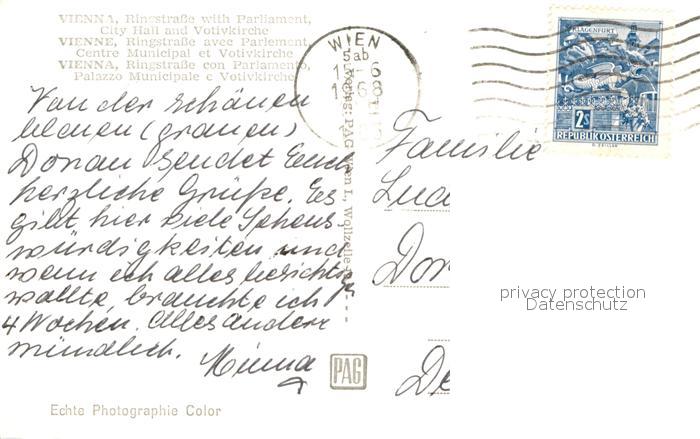 VIENNA, Ringstraße with Parliament,
City Hall and Votivkirche
VIENNE, Ringstrasse avec Parlement,
Centre Municipal et Votivkirche
VIENNA, Ringstraße con Parlamento,
Palazzo Municipale e Votivkirche
Von der schönen
blauen (grauen)
Donau sendet Euch
herzliche Grüße. Es
gibt hier viele Sehens
würdigkeiten und
wenn ich alles besichtigen
wollte, brauchte ich
4 Wochen. Alles andere
mündlich. Minna
Echte Photographie Color
PAG Wien I., Wollzeile
PAG
WIEN
5ab
KLAGENFURT
2S
REPUBLIK ÖSTERREICH
Familie
Dor
De
privacy protection
Datenschutz